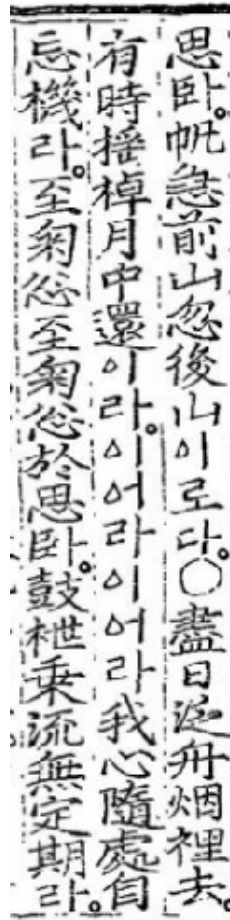 思卧。帆急前山忽後山이로다。○盡日泛舟烟裡去。
有時揺棹月中還이라。이어라이어라我心隨處自
忘機라。至匊忩至匊忩於思卧。鼓枻乗流無定期라。